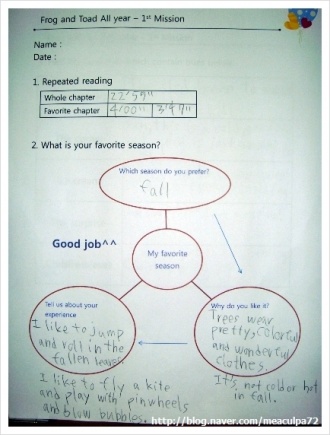 Frog and Toad All year – 1st Mission
Name :
Date :
1. Repeated reading
Whole chapter 22'57"
Favorite chapter 4'00" 3'47"
2. What is your favorite season?
Which season do you prefer?
fall
Good job^^
My favorite
season
Tell us about your
experience
I like to jump
and roll in the
fallen leaves.
I like to fly a kite
and play with pinwheels
and blow bubbles.
Why do you like it?
Trees wear
pretty, colorful
and wonderful
clothes.
It's not cold or hot
in fall.
http://blog.naver.com/meaculpa72